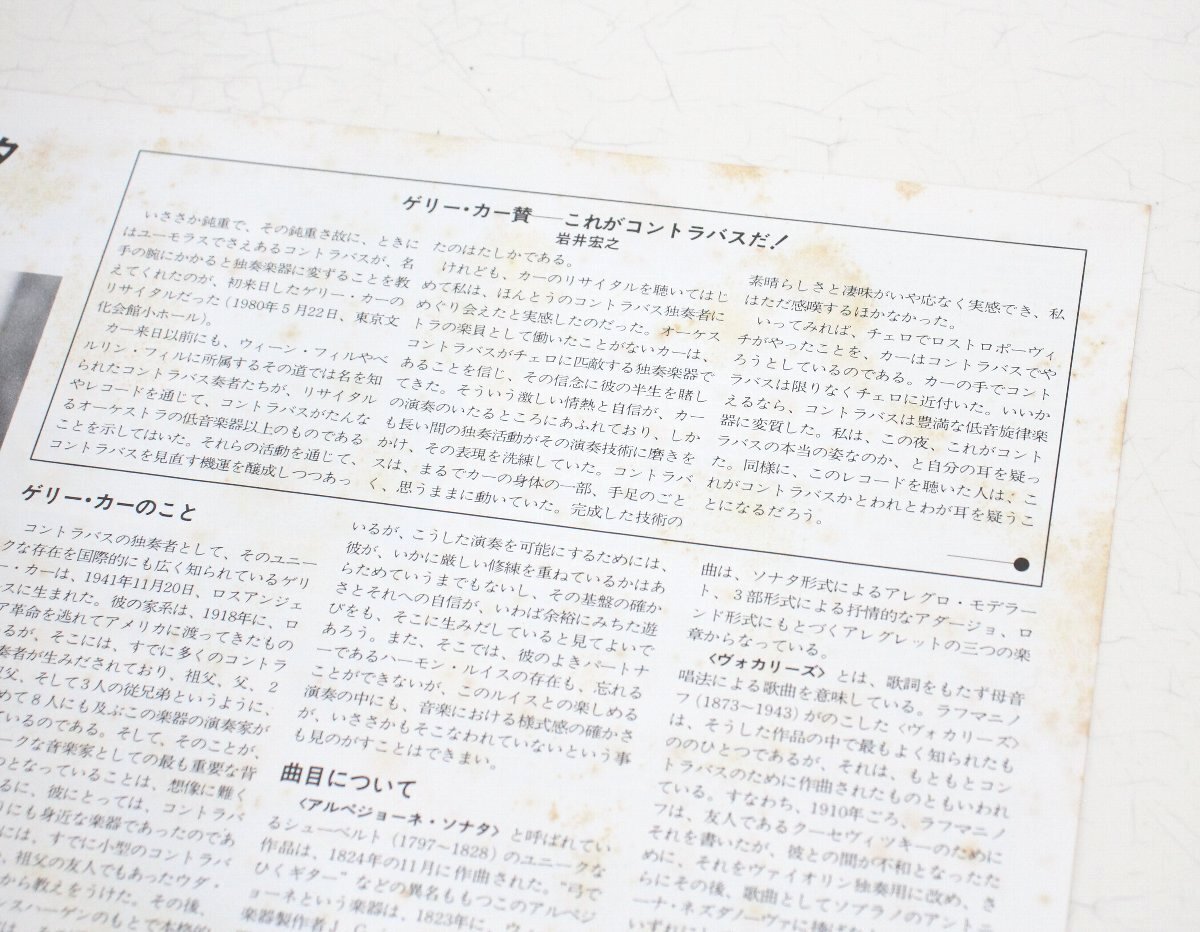 タ
ゲリー・カー賛──これがコントラバスだ！
岩井宏之
いささか鈍重で、その鈍重さ故に、ときに
はユーモラスでさえあるコントラバスが、名
手の腕にかかると独奏楽器に変ずることを教
えてくれたのが、初来日したゲリー・カーの
リサイタルだった（1980年5月22日、東京文
化会館小ホール）。
カー来日以前にも、ウィーン・フィルやベ
ルリン・フィルに所属するその道では名を知
られたコントラバス奏者たちが、リサイタル
やレコードを通じて、コントラバスがたんな
るオーケストラの低音楽器以上のものである
ことを示してはいた。それらの活動を通じて、
コントラバスを見直す機運を醸成しつつあっ
たのはたしかである。
けれども、カーのリサイタルを聴いてはじ
めて私は、ほんとうのコントラバス独奏者に
めぐり会えたと実感したのだった。オーケス
トラの楽員として働いたことがないカーは、
コントラバスがチェロに匹敵する独奏楽器で
あることを信じ、その信念に彼の半生を賭し
てきた。そういう激しい情熱と自信が、カー
の演奏のいたるところにあふれており、しか
も長い間の独奏活動がその演奏技術に磨きを
かけ、その表現を洗練していた。コントラバ
スは、まるでカーの身体の一部、手足のごと
く、思うままに動いていた。完成した技術の
素晴らしさと凄味がいや応なく実感でき、私
はただ感嘆するほかなかった。
いってみれば、チェロでロストロポーヴィ
チがやったことを、カーはコントラバスでや
ろうとしているのである。カーの手でコント
ラバスは限りなくチェロに近付いた。いいか
えるなら、コントラバスは豊満な低音旋律楽
器に変質した。私は、この夜、これがコント
ラバスの本当の姿なのか、と自分の耳を疑っ
た。同様に、このレコードを聴いた人は、こ
れがコントラバスかとわれとわが耳を疑うこ
とになるだろう。
ゲリー・カーのこと
コントラバスの独奏者として、そのユニー
クな存在を国際的にも広く知られているゲリ
ー・カーは、1941年11月20日、ロスアンジェ
スに生まれた。彼の家系は、1918年に、ロ
ア革命を逃れてアメリカに渡ってきたもの
るが、そこには、すでに多くのコントラ
奏者が生みだされており、祖父、父、2
祖父、そして3人の従兄弟というように、
めて8人にも及ぶこの楽器の演奏家が
いるのである。そして、そのことが、
ークな音楽家としての最も重要な背
つとなっていることは、想像に難く
るに、彼にとっては、コントラバ
りにも身近な楽器であったのであ
には、すでに小型のコントラバ
、祖父の友人でもあったウダ・
から教えをうけた。その後、
ンスハーゲンのもとで本格的
いるが、こうした演奏を可能にするためには、
彼が、いかに厳しい修練を重ねているかはあ
らためていうまでもないし、その基盤の確か
さとそれへの自信が、いわば余裕にみちた遊
びをも、そこに生みだしていると見てよいで
あろう。また、そこでは、彼のよきパートナ
ーであるハーモン・ルイスの存在も、忘れる
ことができないが、このルイスとの楽しめる
演奏の中にも、音楽における様式感の確かさ
が、いささかもそこなわれていないという事
も見のがすことはできまい。
曲目について
〈アルペジョーネ・ソナタ〉と呼ばれてい
るシューベルト（1797〜1828）のユニークな
作品は、1824年の11月に作曲された。“弓で
ひくギター”などの異名ももつこのアルペジ
ョーネという楽器は、1823年に、ウィ
楽器製作者J.G.
曲は、ソナタ形式によるアレグロ・モデラー
ト、3部形式による抒情的なアダージョ、ロ
ンド形式にもとづくアレグレットの三つの楽
章からなっている。
〈ヴォカリーズ〉とは、歌詞をもたず母音
唱法による歌曲を意味している。ラフマニノ
フ（1873〜1943）がのこした〈ヴォカリーズ〉
は、そうした作品の中で最もよく知られたも
ののひとつであるが、それは、もともとコン
トラバスのために作曲されたものともいわれ
ている。すなわち、1910年ごろ、ラフマニノ
フは、友人であるクーセヴィツキーのために
それを書いたが、彼との間が不和となったた
めに、それをヴァイオリン独奏用に改め、さ
らにその後、歌曲としてソプラノのアント
ーナ・ネズダノーヴァに捧げた